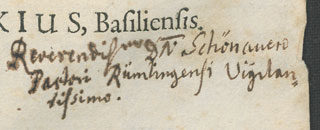 KIUS, Basiliensis.
Reverendissmo DN Schönauero
Pastori Rümlingensi Vigilan-
tissimo.